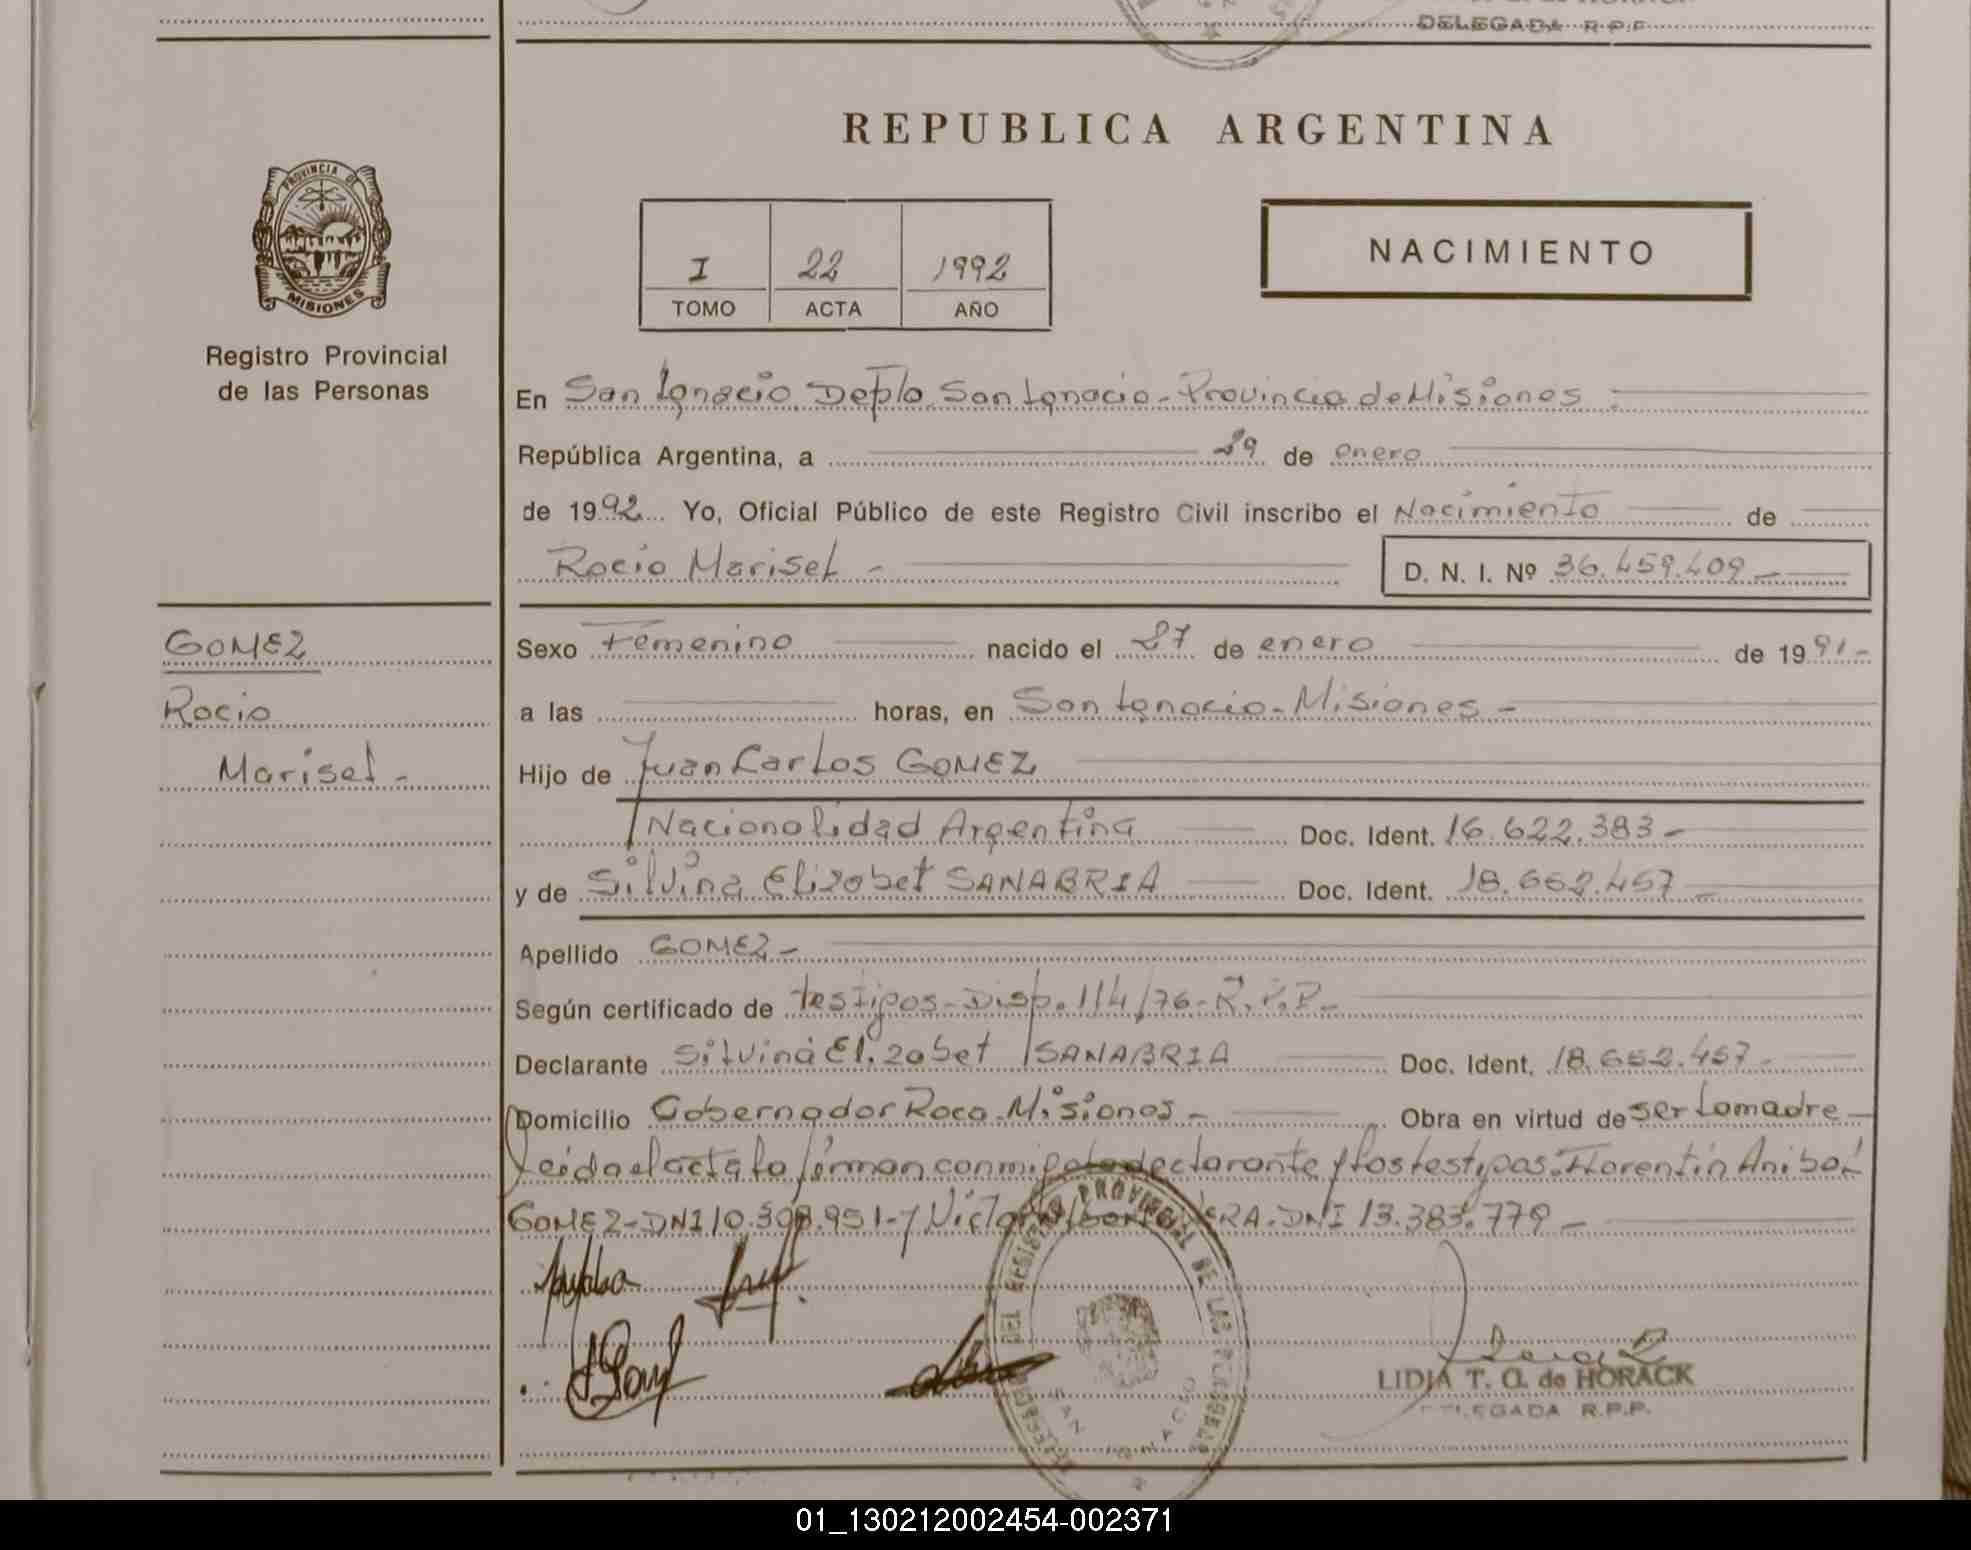 DELEGADA R.P.P.
REPUBLICA ARGENTINA
PROVINCIA DE
MISIONES
Registro Provincial
de las Personas
I 22 1992
TOMO ACTA AÑO
NACIMIENTO
En San Ignacio Depto. San Ignacio - Provincia de Misiones
República Argentina, a 29 de enero
de 1992 Yo, Oficial Público de este Registro Civil inscribo el Nacimiento de
Rocio Marisel - D. N. I. Nº 36.459.409 -
GOMEZ
Rocio
Marisel -
Sexo Femenino nacido el 27 de enero de 1991 -
a las horas, en San Ignacio - Misiones -
Hijo de Juan Carlos GOMEZ
Nacionalidad Argentina Doc. Ident. 16.622.383 -
y de Silvina Elizabet SANABRIA Doc. Ident. 18.652.457 -
Apellido GOMEZ -
Según certificado de testigos - Disp. 114/76 - R.P.P -
Declarante Silvina Elizabet SANABRIA Doc. Ident. 18.652.457 -
Domicilio Gobernador Roca - Misiones - Obra en virtud de ser la madre
Leída el acta la firman conmigo la declarante y los testigos: Florentín Anibal
GOMEZ - DNI 10.308.951 - y Victor - DNI 13.383.779 -
DEL REGISTRO PROVINCIAL DE LAS PERSONAS
SAN IGNACIO
LIDIA T. O. de HORACK
DELEGADA R.P.P.
01_130212002454-002371